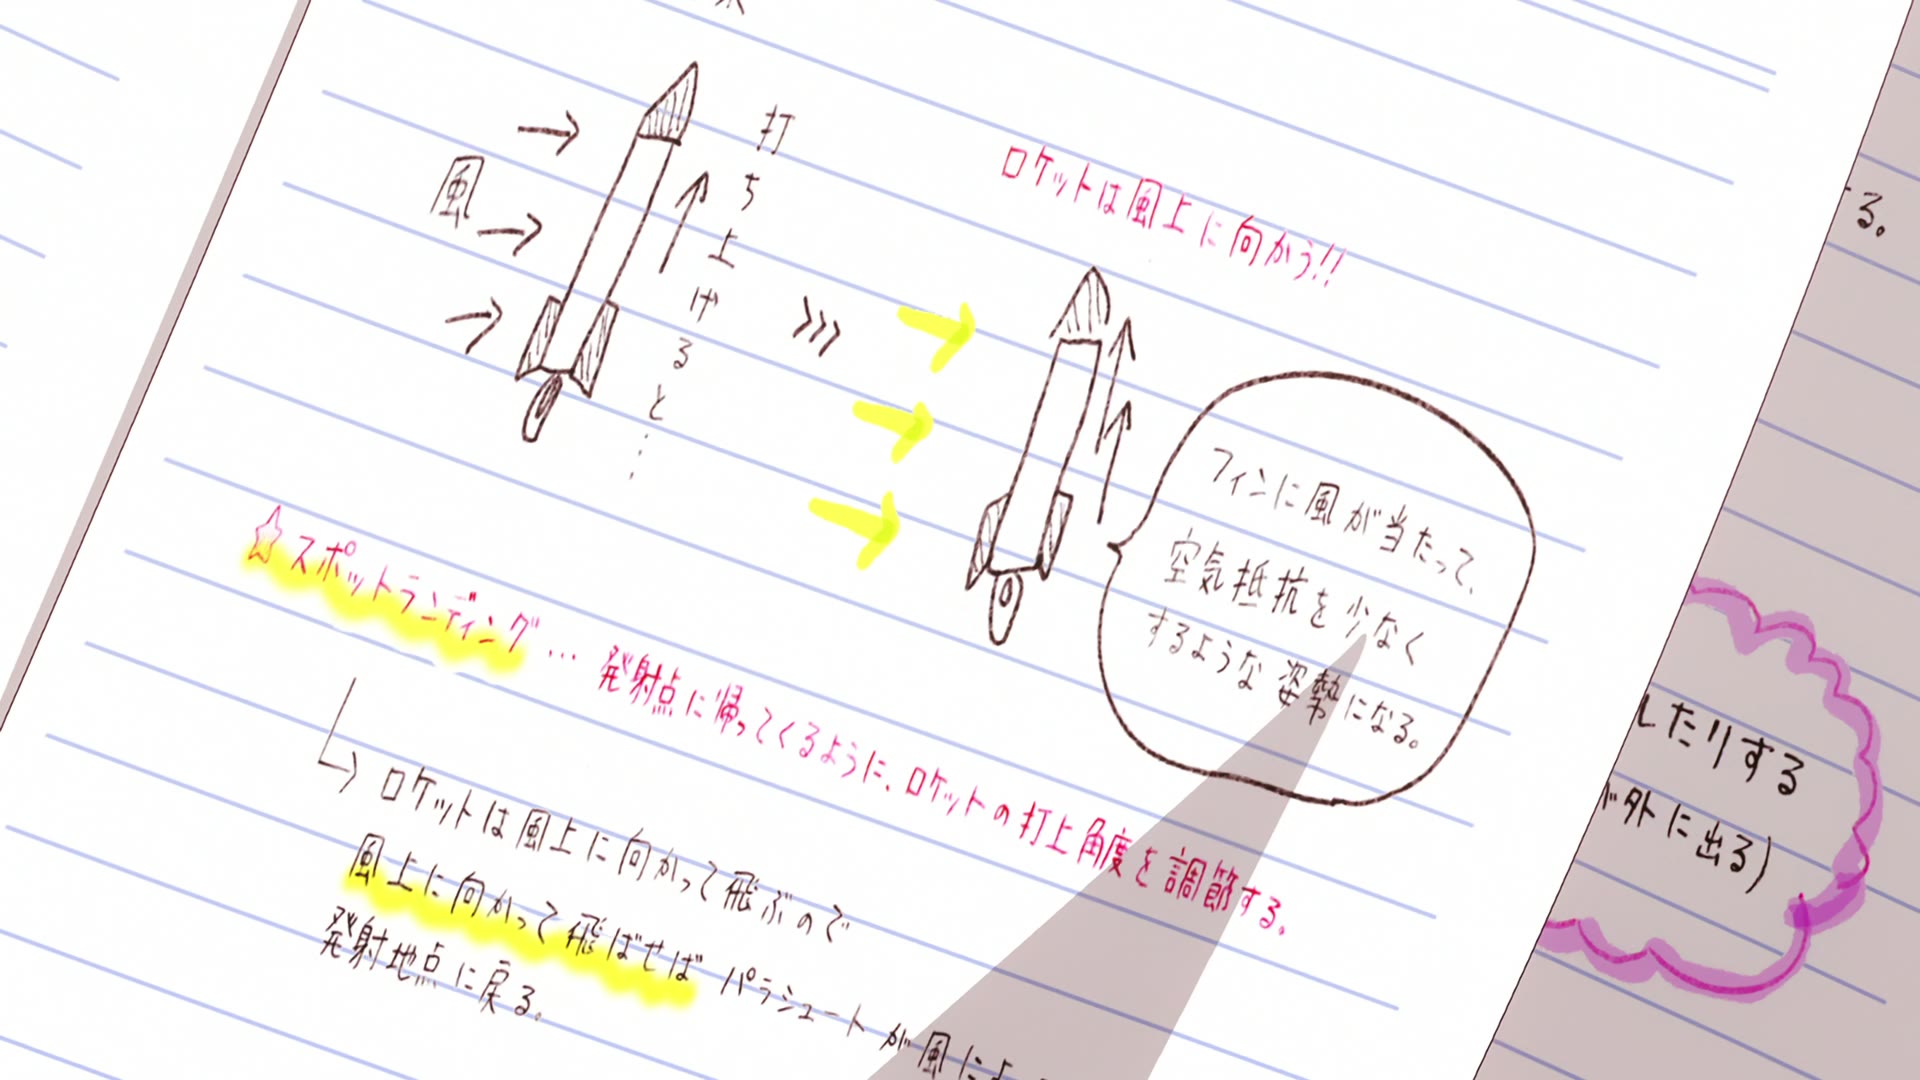 風
打ち上げると…
ロケットは風上に向かう!!
フィンに風が当たって、
空気抵抗を少なく
するような姿勢になる。
☆スポットランディング… 発射点に帰ってくるように、ロケットの打上角度を調節する。
ロケットは風上に向かって飛ぶので
風上に向かって飛ばせば パラシュートが風によ
発射地点に戻る。
る。
したりする
外に出る)